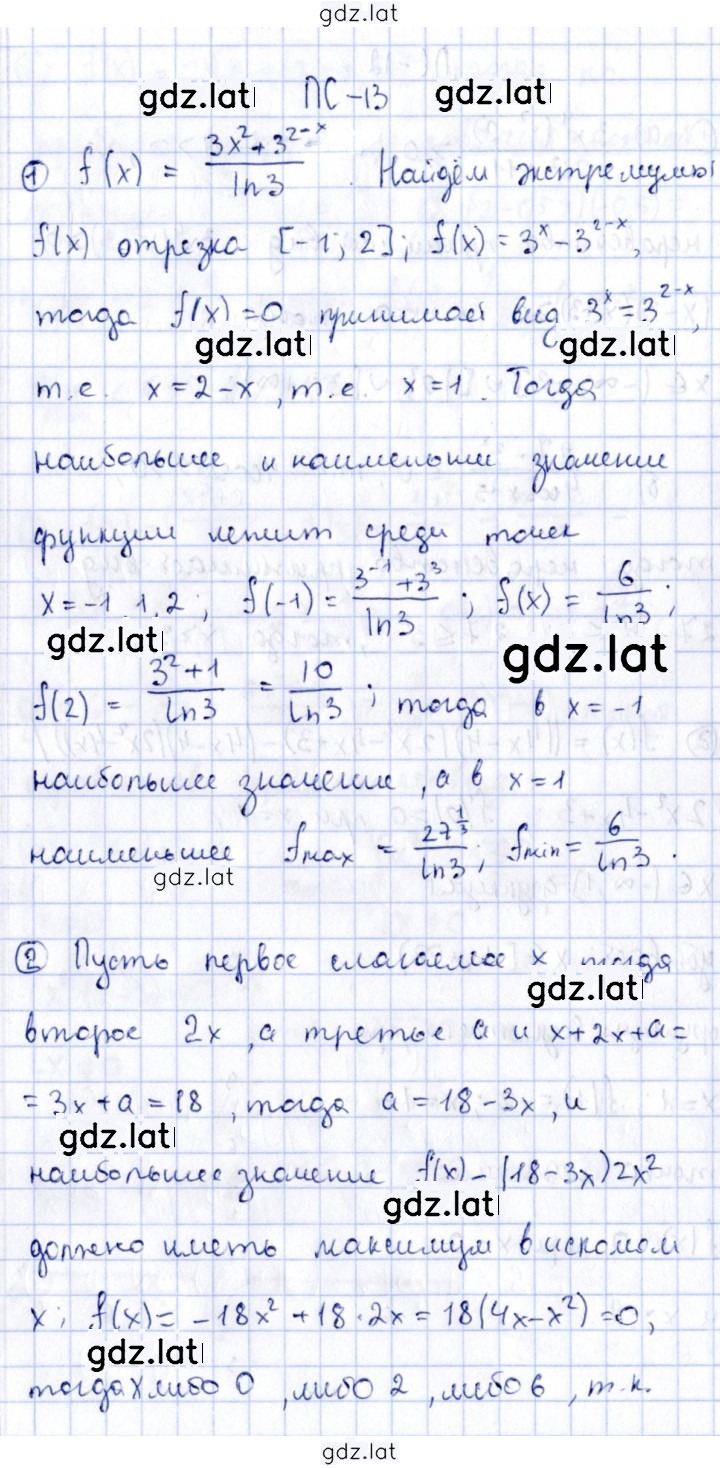 gdz.lat
gdz.lat ПС-13 gdz.lat
① f(x) = (3x²+3^(2-x))/ln3 . Найдём экстремумы
f(x) отрезка [-1; 2]; f(x) = 3^x - 3^(2-x),
тогда f(x) = 0 принимает вид 3^x = 3^(2-x),
gdz.lat gdz.lat
т.е. x = 2-x, т.е. x = 1. Тогда
наибольшее и наименьшие значение
функции лежит среди точек
x = -1, 1, 2; f(-1) = (3^(-1)+3³)/ln3 ; f(x) = 6/ln3 ;
gdz.lat gdz.lat
f(2) = (3²+1)/ln3 = 10/ln3 ; тогда в x = -1
наибольшее значение, а в x = 1
наименьшее fmax = 27^(1/3)/ln3 ; fmin = 6/ln3 .
gdz.lat
② Пусть первое слагаемое x тогда
gdz.lat
второе 2x, а третье a и x+2x+a=
= 3x + a = 18, тогда a = 18-3x, и
gdz.lat
наибольшее значение f(x) = (18-3x)2x²
gdz.lat
должно иметь максимум в искомом
x; f(x) = -18x² + 18·2x = 18(4x-x²) = 0;
gdz.lat
тогда x либо 0, либо 2, либо 6, т.к.
gdz.lat